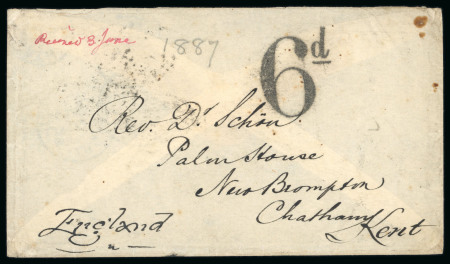 Received 3 June
1887
6d
Rev. Dr Schön
Palm House
New Brompton
Chatham
Kent
England